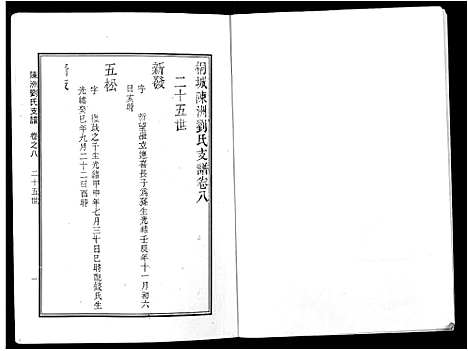 桐城陳洲劉氏支譜卷八
二十五世
新發
字 行 聖澤立德喜長子爲蘇生光緒壬辰年十一月初六
日亥時
五松
字 行 盛之子生光緒甲申年七月三十日巳時配錢氏生
光緒癸巳年九月二十二日酉時
陳洲劉氏支譜 卷之八 二十五世 一